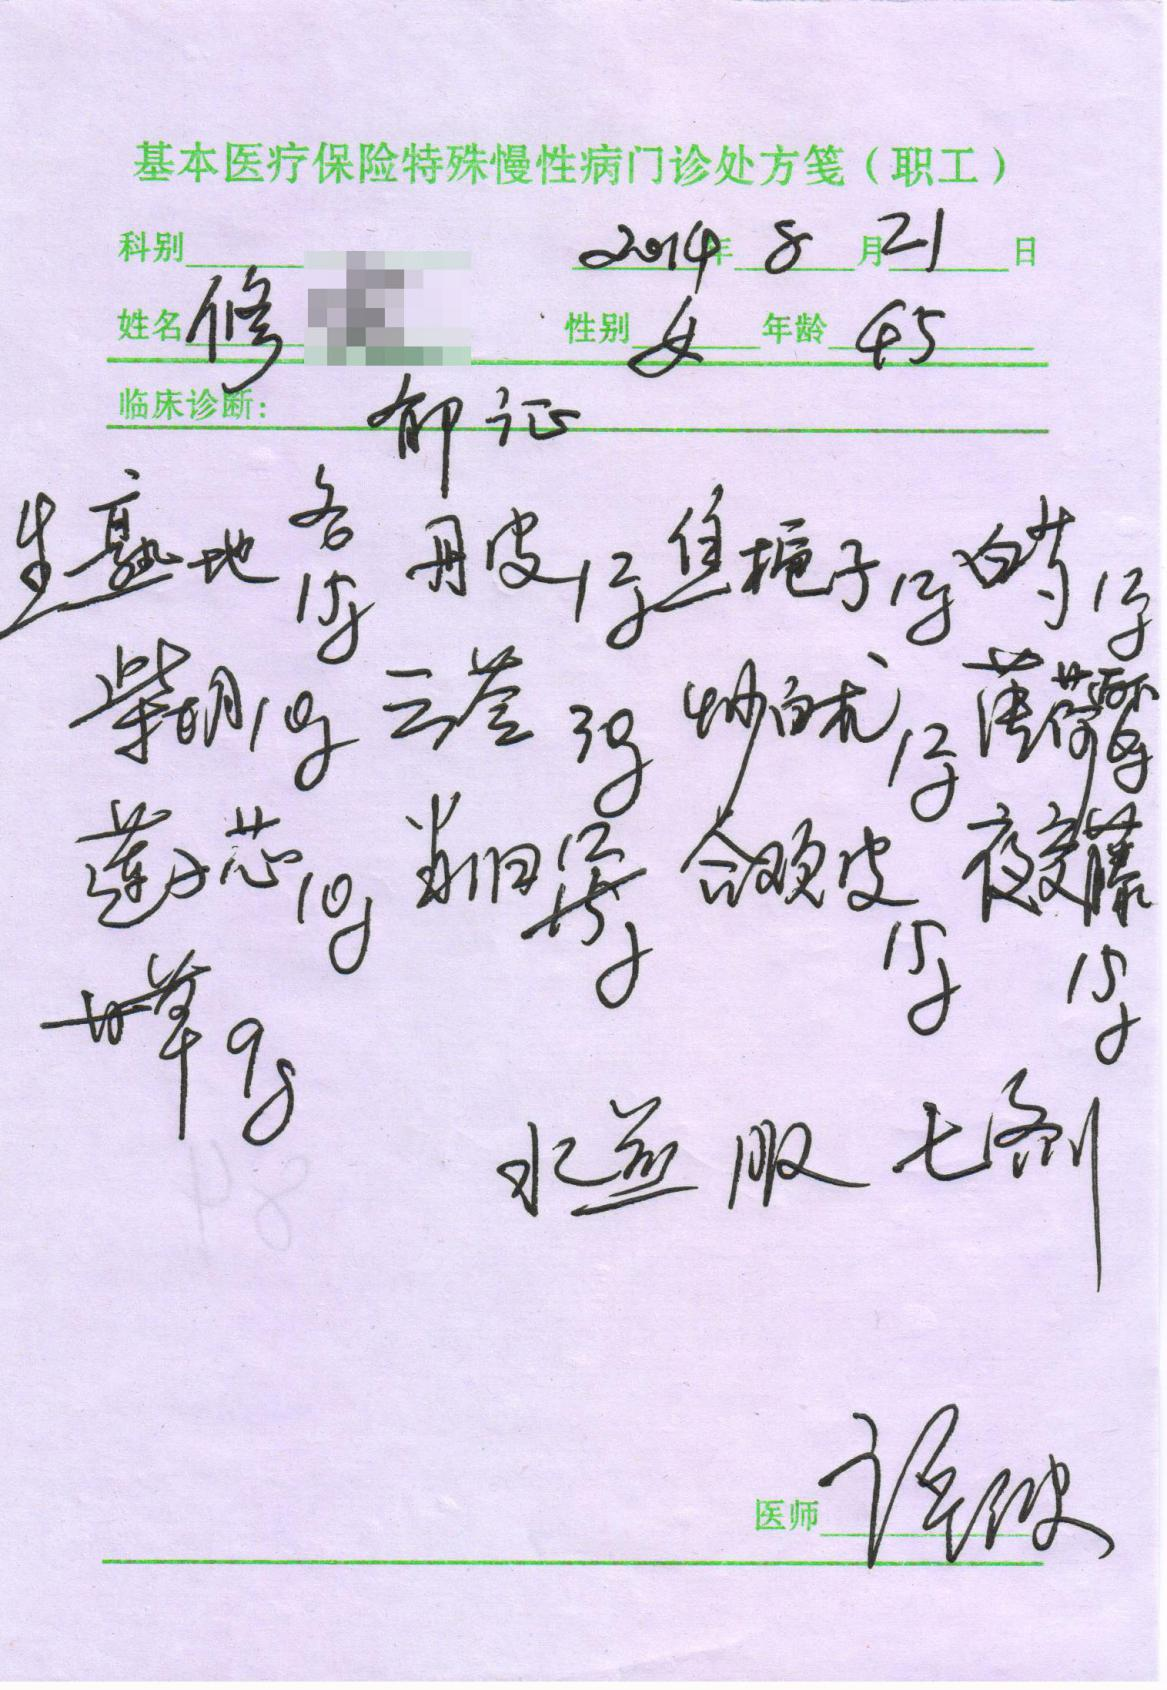 基本医疗保险特殊慢性病门诊处方笺（职工）
科别 2014年8月21日
姓名 修 性别 女 年龄 45
临床诊断: 郁证
生熟地各15g 丹皮12g 焦栀子12g 白芍12g
柴胡10g 云苓30g 炒白术12g 薄荷
莲子芯10g 当归12g 合欢皮15g 夜交藤15g
甘草9g
水煎服 七剂
医师